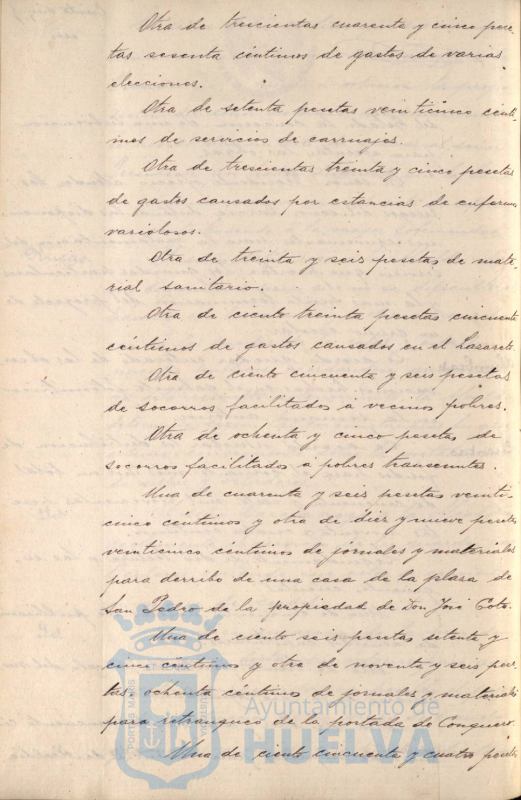 Otra de trescientas cuarenta y cinco pese-
tas sesenta céntimos de gastos de varias
elecciones.
Otra de setenta pesetas veinticinco cénti-
mos de servicios de carruajes.
Otra de trescientas treinta y cinco pesetas
de gastos causados por estancias de enfermos
variolosos.
Otra de treinta y seis pesetas de mate-
rial sanitario.
Otra de ciento treinta pesetas cincuenta
céntimos de gastos causados en el Lazareto.
Otra de ciento cincuenta y seis pesetas
de socorros facilitados à vecinos pobres.
Otra de ochenta y cinco pesetas de
socorros facilitados a pobres transeuntes.
Una de cuarenta y seis pesetas veinti-
cinco céntimos y otra de diez y nueve pesetas
veinticinco céntimos de jornales y materiales
para derribo de una casa de la plaza de
San Pedro de la propiedad de Don José Coto.
Una de ciento seis pesetas setenta y
cinco céntimos y otra de noventa y seis pese-
tas ochenta céntimos de jornales y materiales
para retranqueo de la portada de Conquero.
Una de ciento cincuenta y cuatro pesetas
Ayuntamiento de
HUELVA